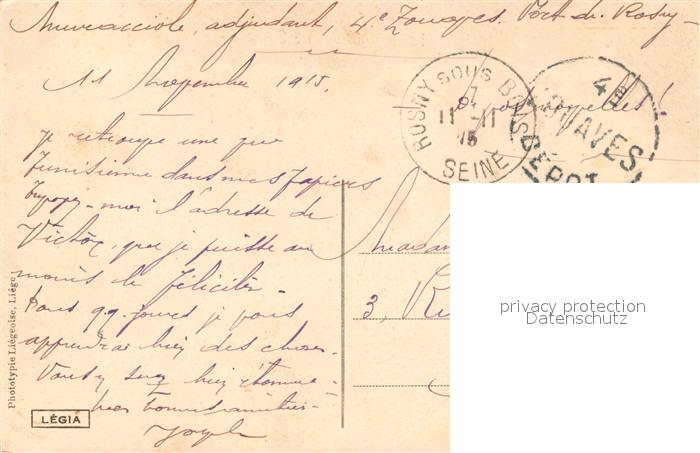 adjudant, 4e Zouaves. Fort de Rosny
11 Novembre 1915.
de vos nouvelles!
ROSNY SOUS BOIS
11 -11
15
SEINE
4me ZOUAVES
DEPOT
je retrouve une vue
Tunisienne dans mes papiers
Envoyez-moi l'adresse de
Victor, que je puisse au
moins le féliciter -
Dans qq. jours je vous
apprendrai bien des choses.
Vous en serez bien étonnée -
Mes bonnes amitiés -
Joseph
Madam
3, Ru
privacy protection
Datenschutz
Phototypie Liégeoise, Liège
LÉGIA